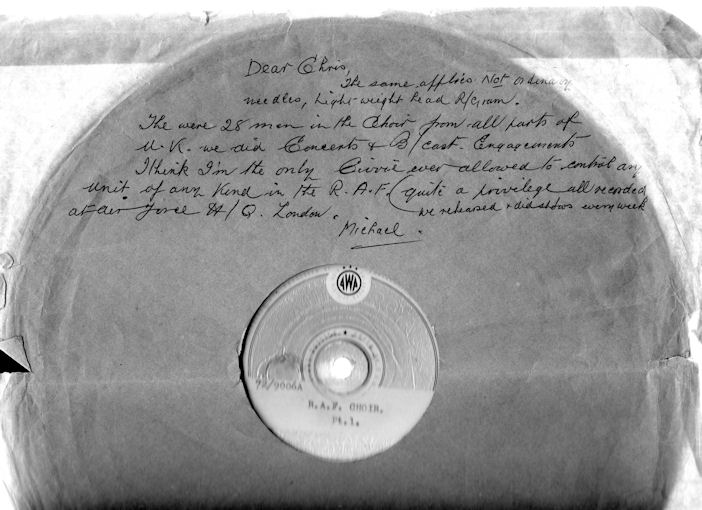 Dear Chris,
The same applies Not ordinary
needles, Light weight head R/Gram.
The were 28 men in the Choir from all parts of
U.K. we did Concerts & B/cast. Engagements
I think I'm the only Civvie ever allowed to control any
Unit of any kind in the R.A.F. (quite a privilege all recorded
at air force H/Q. London. we rehearsed & did shows every week
Michael.
AWA
72/9006A
R.A.F. CHOIR.
Pt.1.